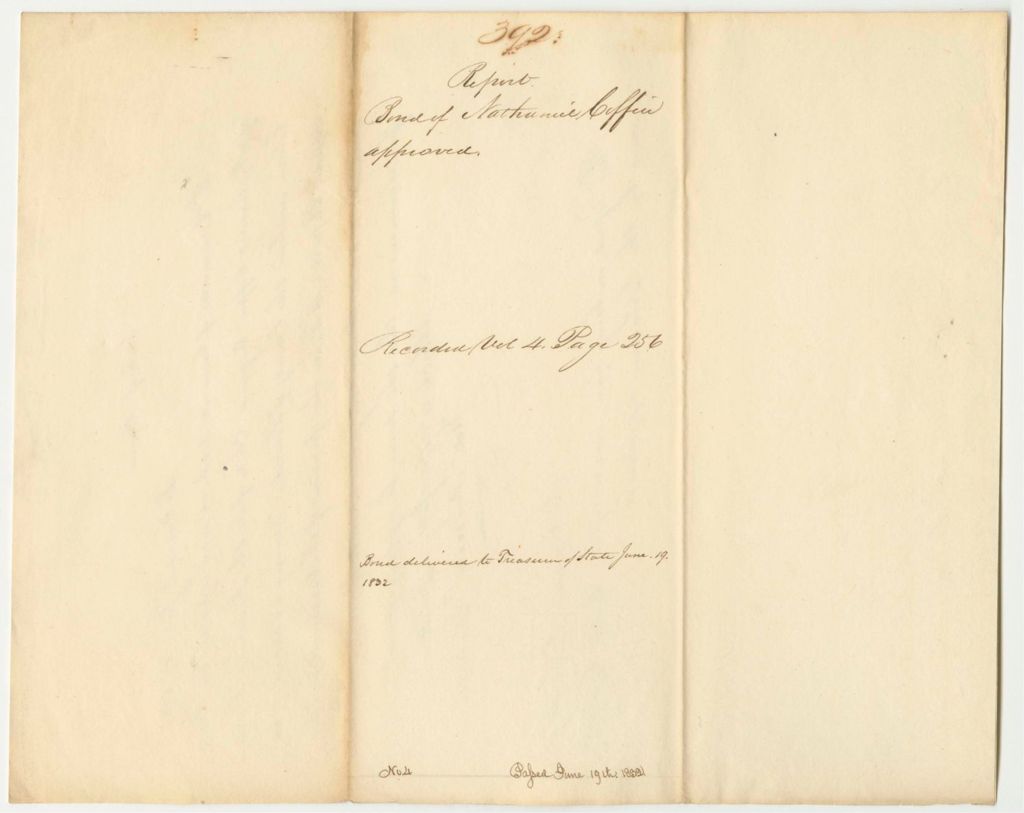 392.
Report.
Bond of Nathaniel Coffin
approved.
Recorded Vol 4. Page 256
Bond delivered to Treasurer of State June. 19.
1832
No. 4
Passed June 19th. 1832